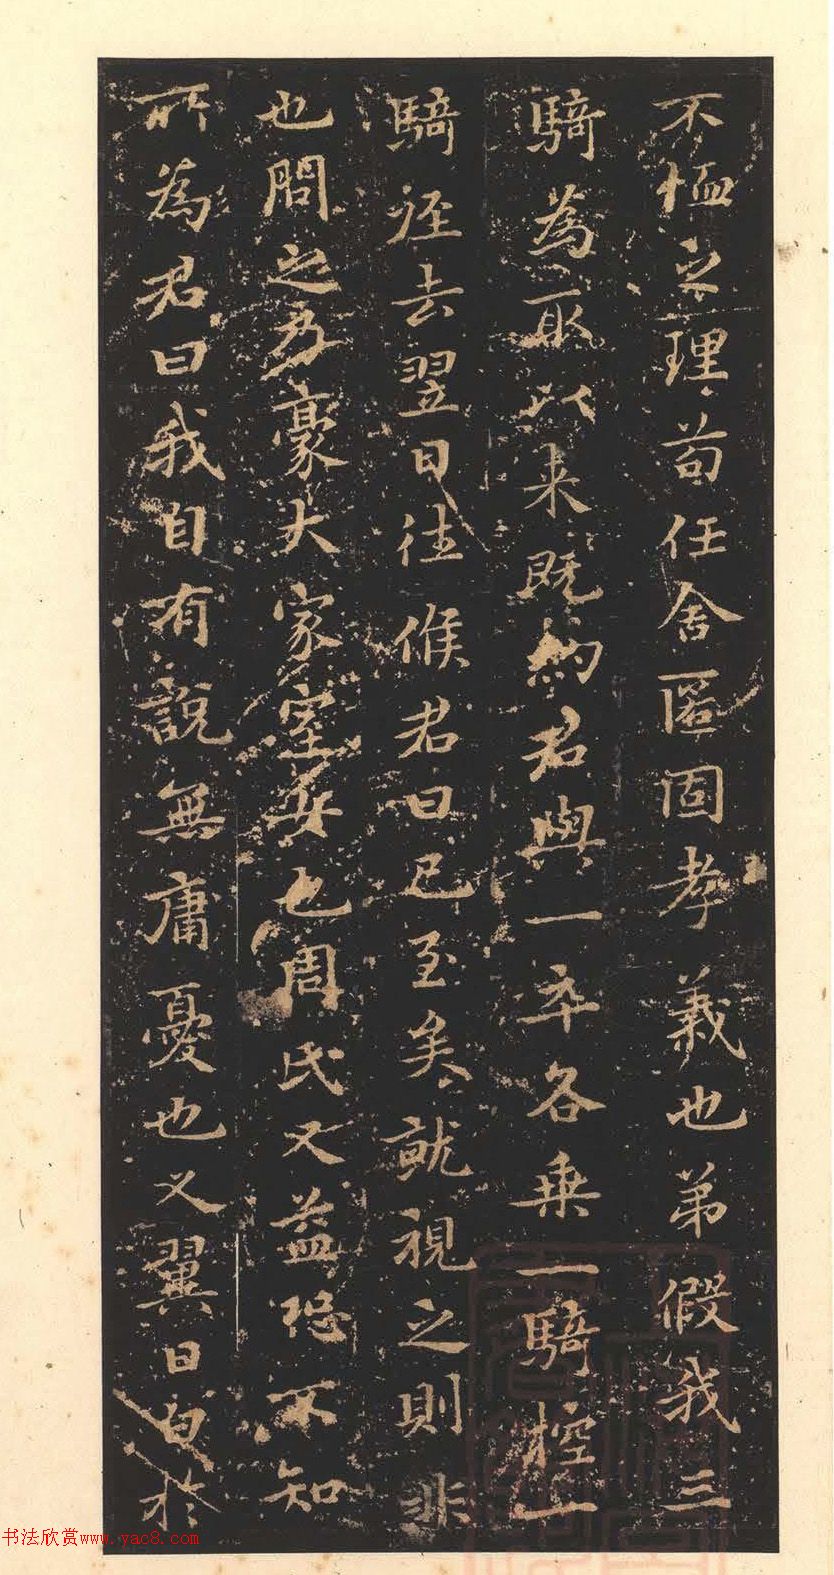 不恤之理苟任舍匿固孝義也弟假我三
騎為取以来既約君與一卒各乗一騎控一
騎徑去翌日往候君曰已至矣就視之則非
也問之乃豪大家室女也周氏又益恐不知
所為君曰我自有說無庸憂也又翼日自於
书法欣赏www.yac8.com